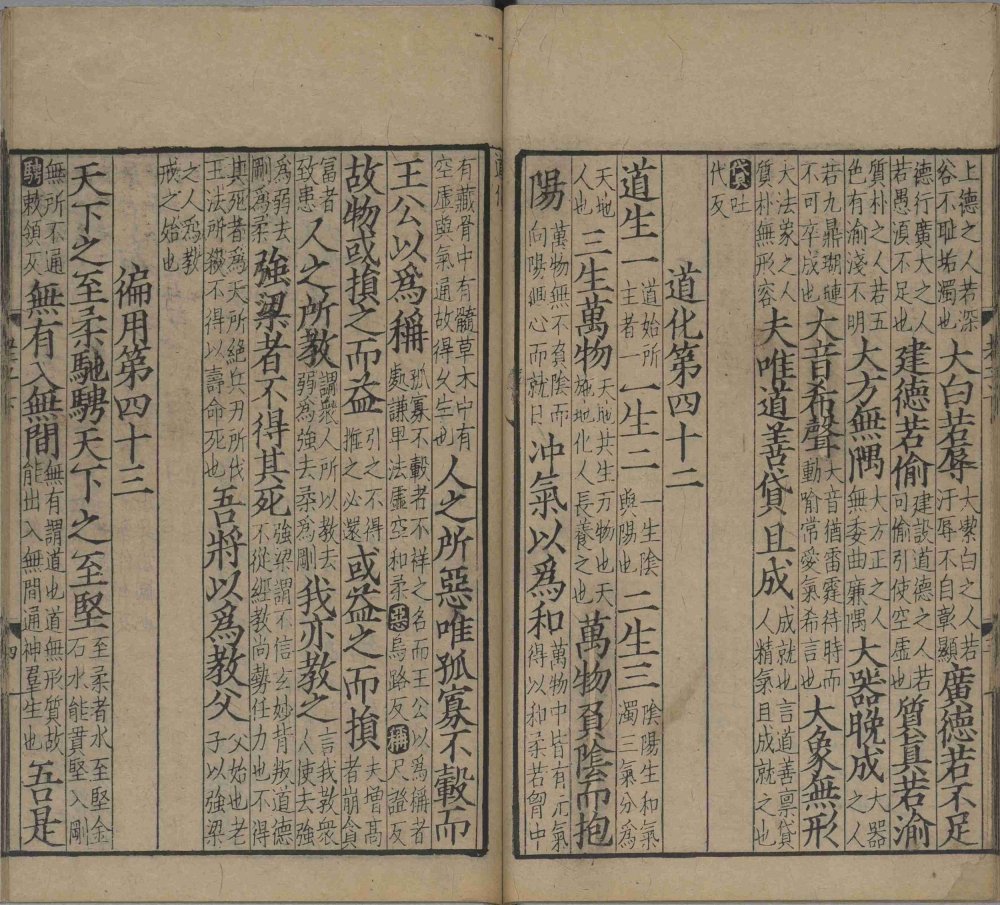 上德之人若深谷不恥垢濁也大白若辱大潔白之人若汙辱不自彰顯廣德若不足
德行廣大之人若愚頑不足也建德若偷建設道德之人若可偷引使空虛也質真若渝
質朴之人若五色有渝淺不明大方無隅大方正之人無委曲廉隅大器晚成大器之人
若九鼎瑚璉不可卒成也大音希聲大音猶雷霆待時而動喻常愛氣希言也大象無形
大法象之人質朴無形容夫唯道善貸且成成就也言道善稟貸人精氣且成就之也
貸吐代反
道化第四十二
道生一道始所主者一一生二一生陰與陽也二生三陰陽生和氣濁三氣分爲
天地人也三生萬物天地共生万物也天施地化人長養之也萬物負陰而抱
陽萬物無不負陰而向陽迴心而就日沖氣以爲和萬物中皆有元氣得以和柔若胷中
有藏骨中有髓草木中有空虛與氣通故得久生也人之所惡唯孤寡不轂而
王公以爲稱孤寡不轂者不祥之名而王公以爲稱者處謙卑法虛空和柔惡烏路反稱尺證反
故物或損之而益引之不得推之必還或益之而損夫增高者崩貪
富者致患人之所教謂衆人所以教去弱爲強去柔爲剛我亦教之言我教衆人使去強
爲弱去剛爲柔強梁者不得其死強梁謂不信玄妙背叛道德不從經教尚勢任力也不得
其死者爲天所絕兵刃所伐王法所殺不得以壽命死也吾將以爲教父父始也老子以強梁
之人爲教戒之始也
徧用第四十三
天下之至柔馳騁天下之至堅至柔者水至堅金石水能貫堅入剛
無所不通騁敕領反無有入無間無有謂道也道無形質故能出入無間通神羣生也吾是